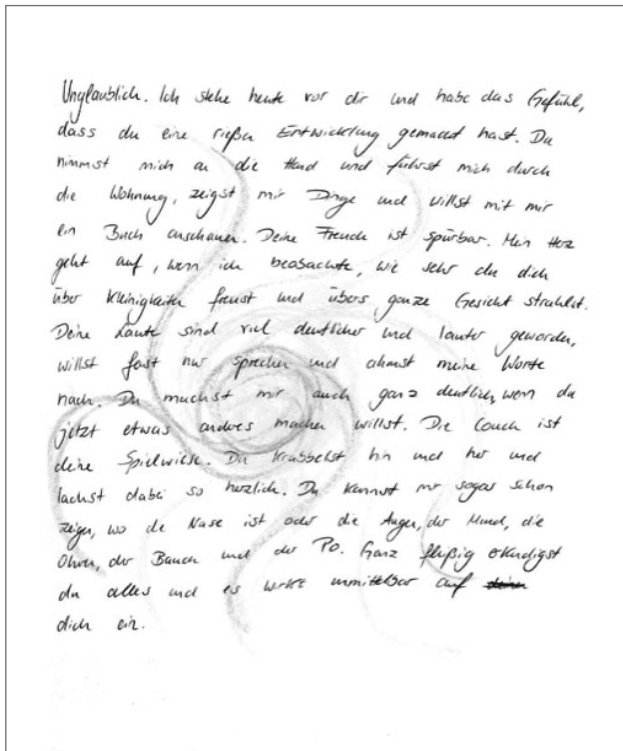 Unglaublich. Ich stehe heute vor dir und habe das Gefühl,
dass du eine rießen Entwicklung gemacht hast. Du
nimmst mich an die Hand und führst mich durch
die Wohnung, zeigst mir Dinge und willst mit mir
ein Buch anschauen. Deine Freude ist spürbar. Mein Herz
geht auf, wenn ich beobachte, wie sehr du dich
über Kleinigkeiten freust und übers ganze Gesicht strahlst.
Deine Laute sind viel deutlicher und lauter geworden,
willst fast nur sprechen und ahmst meine Worte
nach. Du machst mir auch ganz deutlich, wenn du
jetzt etwas anderes machen willst. Die Couch ist
deine Spielwiese. Du krabbelst hin und her und
lachst dabei so herzlich. Du kannst mir sogar schon
zeigen, wo die Nase ist oder die Augen, der Mund, die
Ohren, der Bauch und der Po. Ganz fleißig erkundigst
du alles und es wirkt unmittelbar auf
dich ein.